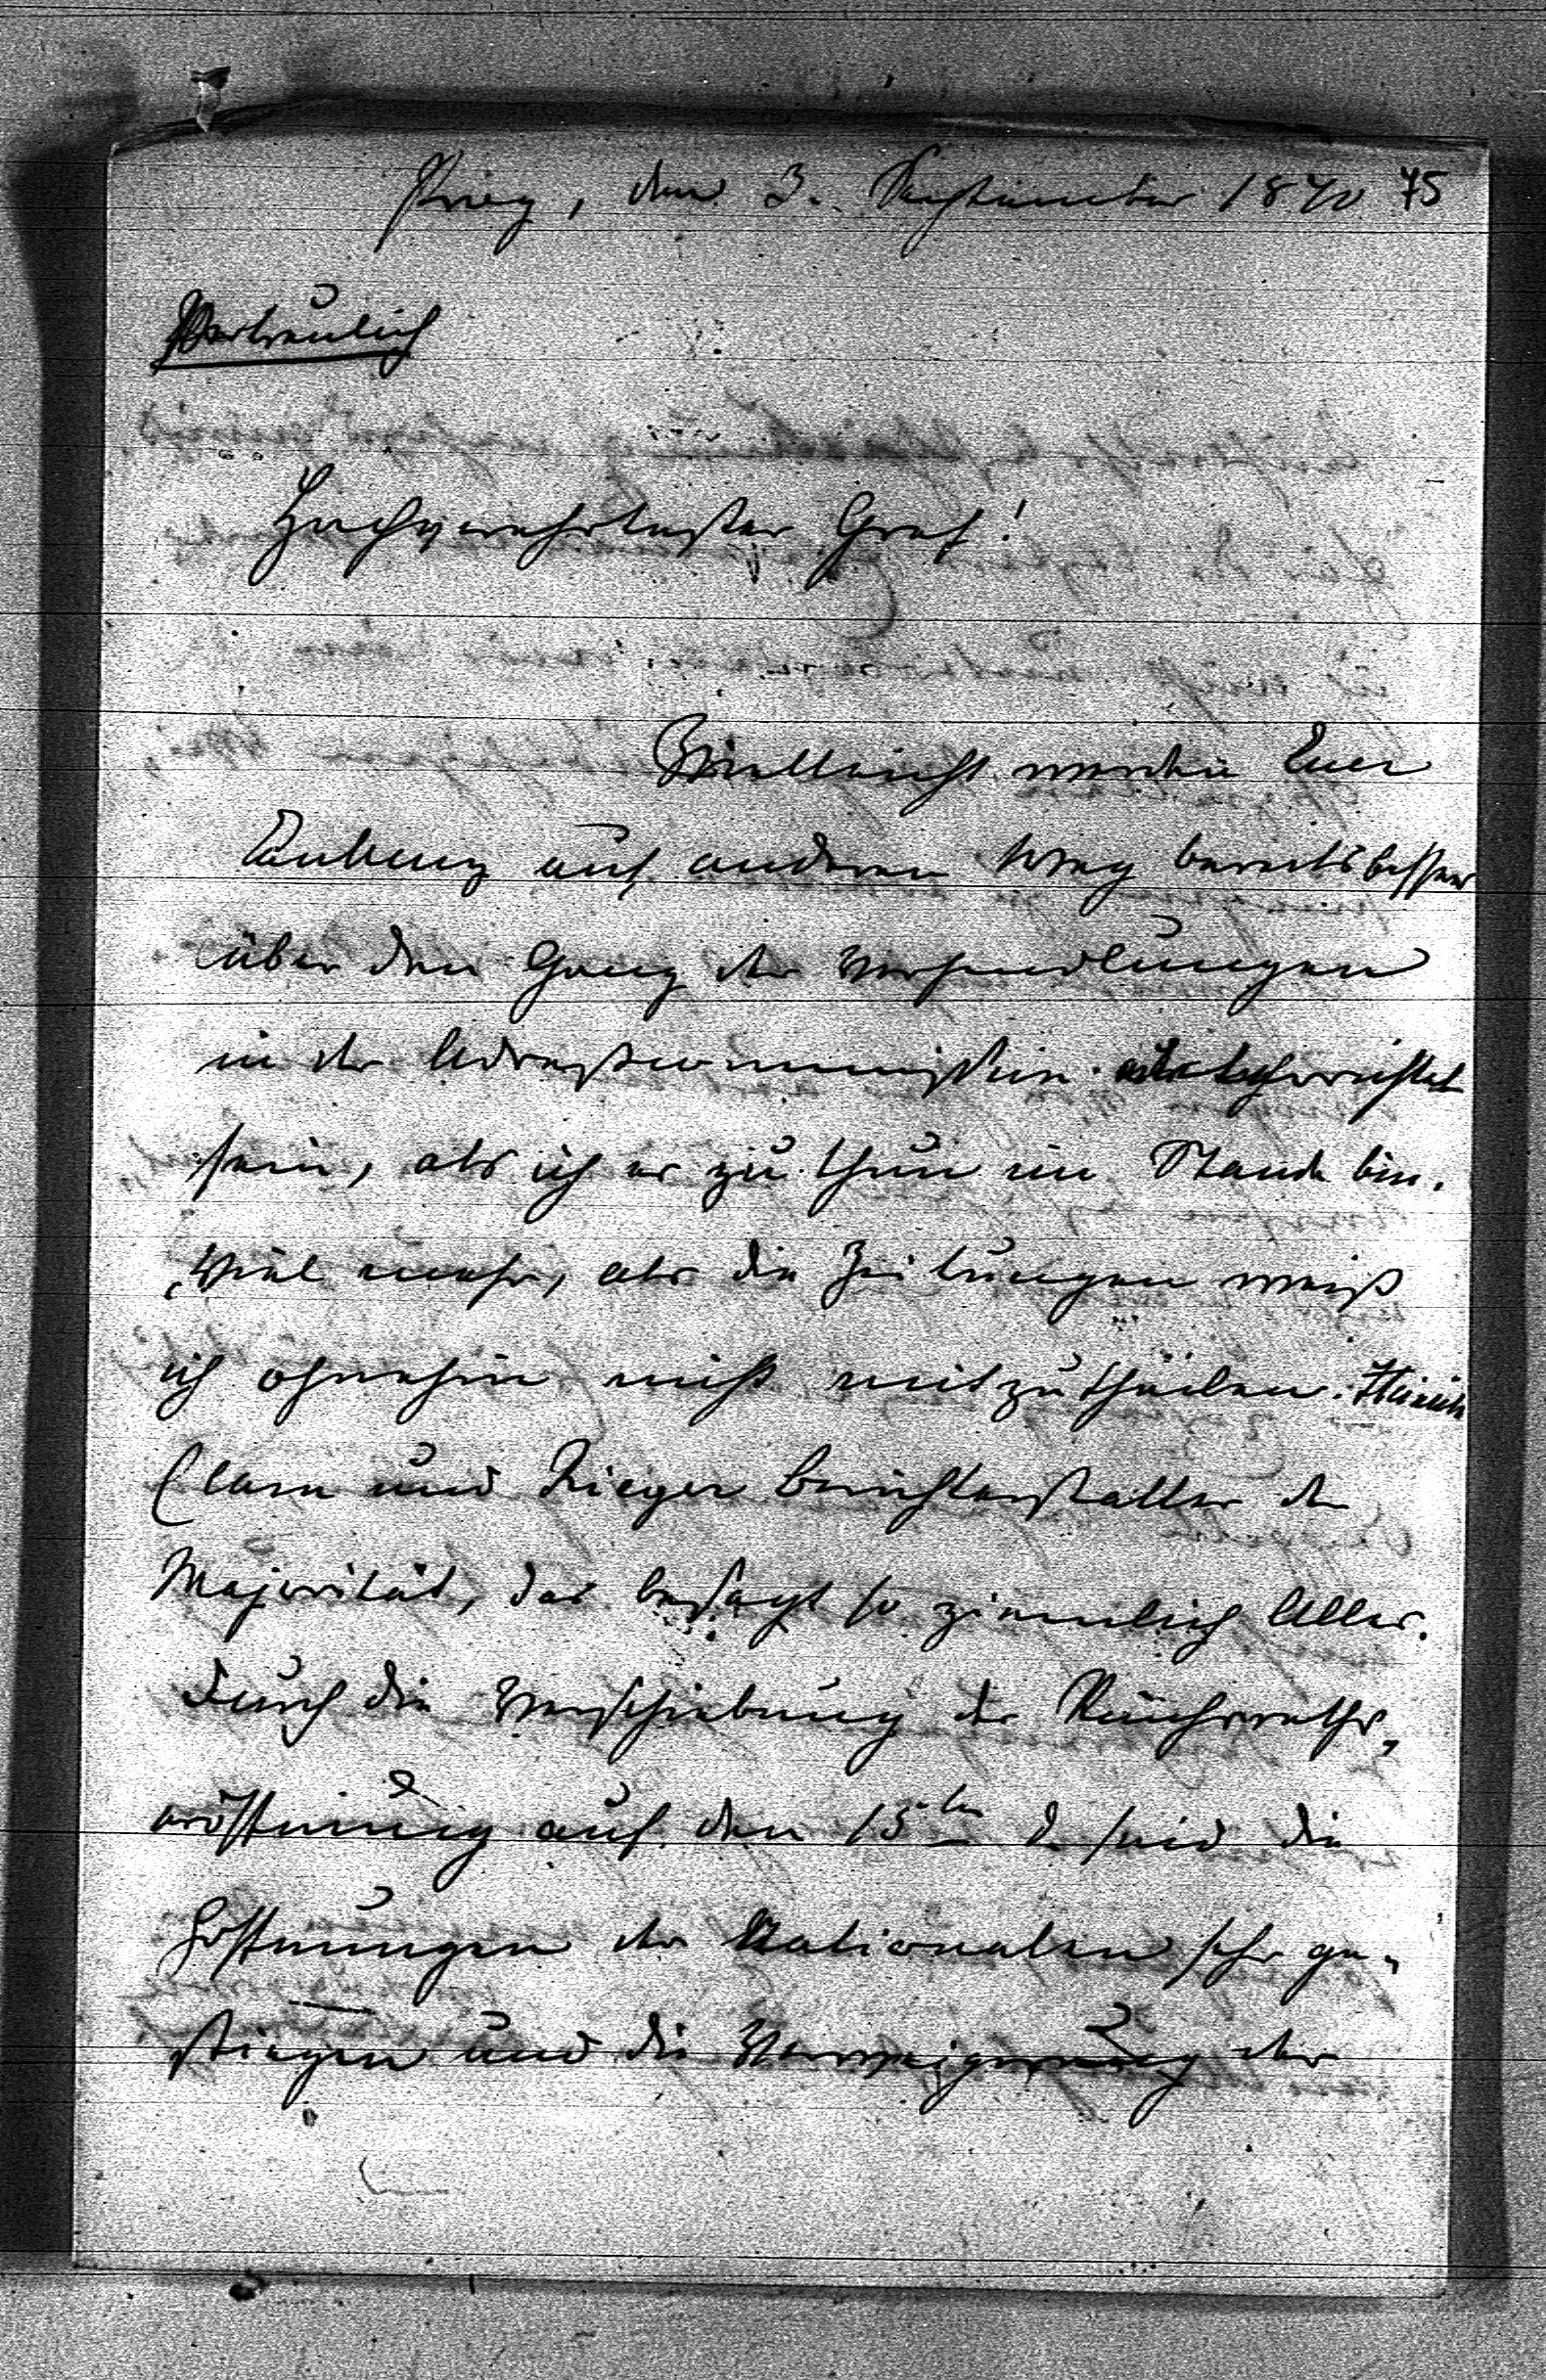 Prag, den 3. September 1870 75
Vertraulich
Hochverehrtester Graf!
Vielleicht werden Euer
Exellenz auf anderen Weg bereits besser
über den Gang der Verhandlungen
in der Adreßcommission unterrichtet
sein, als ich es zu thun im Stande bin.
Viel mehr, als die Zeitungen weiß
ich ohnehin nicht mitzutheilen.
Clam und Rieger Berichterstatter der
Majorität, das besagt so ziemlich Alles.
Durch die Verschiebung der Reichsraths-
eröffnung auf den 15ten d. sind die
Hoffnungen der Nationalen sehr ge-
stiegen und die Verweigerung der